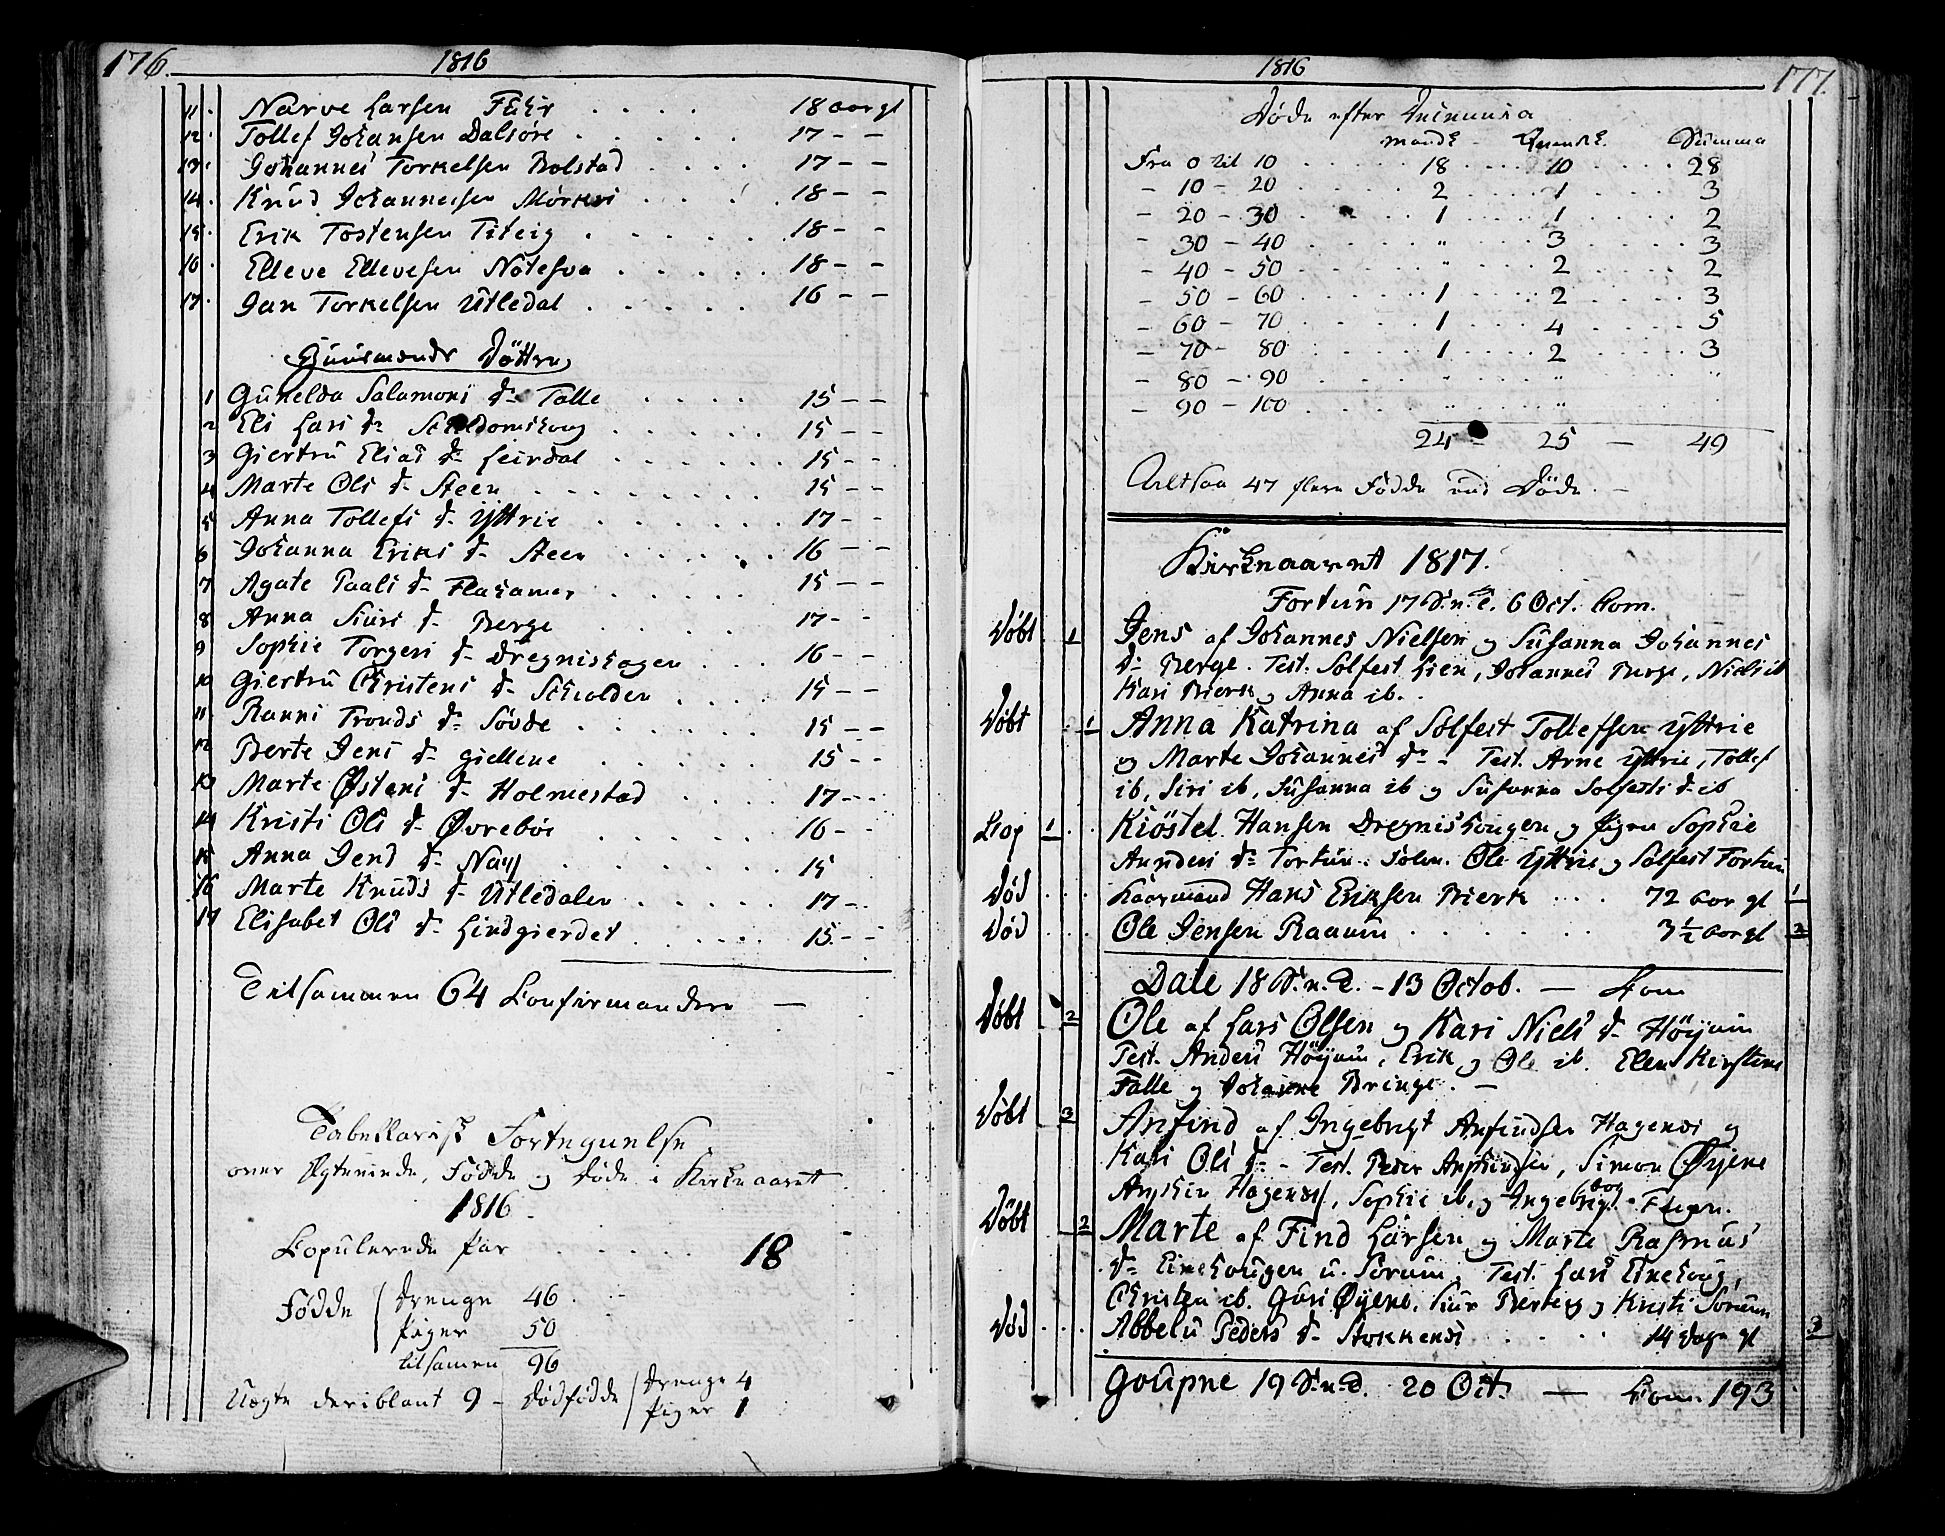 176. 1816
11. Narve Larsen Fuhr . . . . 18 aar gl
12. Tollef Johansen Dalsøre . . . . . 17 - -
13. Johannes Torkelsen Bolstad . . . . 17 - -
14. Knud Johannessen Mørkri . . . . 18 - -
15. Erik Tostensen Titeig . . . . . 18 - -
16. Elleve Ellevesen Nøtesva . . . . . 18 - -
17. Jan Torkelsen Utledal . . . . . 16 - -
Huusmænds Døttre
1 Gunelda Salamons d. Talle . . . . 15 - -
2 Eli Lars dr. . . . . . 15 - -
3 Giertru Elias d. Leirdal . . . . . . 15 - -
4 Marte Ols d. Steen . . . . . . . 15 - -
5 Anna Tollefs d. Yttrie . . . . . . 17 - -
6 Johanna Eriks d. Steen . . . . . 16 - -
7 Agate Paals d. Flahamer . . . . . 15 - -
8 Anna Siurs d. Berge . . . . . 17 - -
9 Sophie Torgers d. Dregnishagen . . . 16 - -
10 Giertru Christens d. Schiolden . . . . 15 - -
11. Ranni Tronds d. Søvde . . . . . . 15 - -
12 Berte Jens d. Giellene . . . . . 15 - -
13 Marte Østens d. Holmestad . . . . 17 - -
14 Kristi Ols d. Øvrebøe . . . . . 16 -
15 Anna Jens d. Næss . . . . . . 15
16 Marte Knuds d. Utledalen . . . . . 17 -
17 Elisabet Ols d. Lindgierdet . . . . . . 15. - -
Tilsammen 64 Confirmandere —
Tabellarisk Fortegnelse
over Ægteviede, Fødde og Døde i Kirkeaaret
1816.
Copulerede par . . . . . 18
Fødde Drenge 46.
Piger 50
tilsamen 96
Uægte deriblant 9 - Dødfødde Drenge 4
Piger 1
1816 177.
Døde efter
Mandk. - Quindk. Summa
Fra 0 til 10 . . . . . 18 . . . . 10 . . . . . 28
- 10 - 20 . . . . . 2 . . . . 1 . . . . . 3
- 20 - 30 . . . . 1 . . . . 1 . . . . . 2
- 30 - 40 . . . . . " . . . . 3 . . . . . 3
- 40 - 50 . . . . . " . . . . 2 . . . . . 2
- 50 - 60 . . . . . 1 . . . . 2 . . . . . 3
- 60 - 70 . . . . . 1 . . . . 4 . . . . . 5
- 70 - 80 . . . . . 1 . . . . 2 . . . . . 3
- 80 - 90 . . . . . " . . . . " . . . . . "
- 90 - 100 . . . . . " . . . . "
24 - 25 — 49
Altsaa 47 flere Fødde end Døde. —
Kirkeaaret 1817.
Fortun 17 S. n. T. 6 Oct. Com.
Døbt. 1 Jens af Johannes Nielsen og Susanna Johannes
d. Berge. Test. Solfest Lien, Johannes Berge, Niels ib
Kari Bierk og Anna ib.
Døbt 1 Anna Katrina af Solfest Tollefsen Yttrie
og Marte Johannes dr - Test. Arne Yttrie, Tollef
ib, Siri ib, Susanna ib og Susanna Solfests d. ib
Cop 1 Kiøstel Hansen Dregnishougen og pigen Sophie
Anders d. Fortun. Solen. Ole Yttrie og Solfest Fortun
Død . . Kaarmand Hans Eriksen Bierk . . . 72 aar gl 1
Død . . . Ole Jensen Raaum . . . . . . 3 1/2 aar gl 2
Dale 18 S. n. T. - 13 Octob. — Com
Døbt 2 Ole af Lars Olsen og Kari Niels d. Høyum
Test. Anders Høyum, Erik og Ole ib. Elen Kirstine
Falle og Johanne Bringe. —
Døbt 3 Anfind af Ingebrigt Anfindsen Hagenes og
Kari Ols d. - Test. Peder Anfindsen, Simon Øyene
Hagenes, Sophie ib. og Ingeborg
Døbt 2 Marte af Find Larsen og Marte Rasmus
d. Einehougen u. Sorum. Test. Lars Einehoug,
Christen ib. Guri Øyene, Siur Berteig og Kristi Sorum
Død . . . Abbelu Peders d. Stokkenes . . . . . 14 dage gl 3
Goupne 19 S. n. T. 20 Oct. — Com. 193